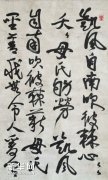 凯风自南吹彼棘心
夭夭母氏劬劳凯风
自南吹彼棘薪母氏
圣善我无令人爰有